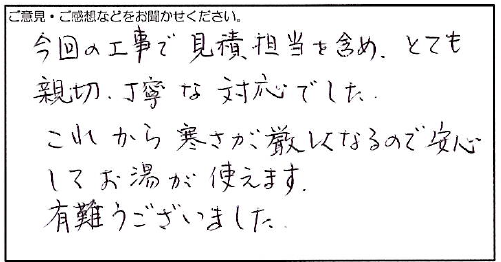 ご意見・ご感想などをお聞かせください。
今回の工事で見積担当を含め、とても
親切、丁寧な対応でした.
これから寒さが厳しくなるので安心
してお湯が使えます.
有難うございました.